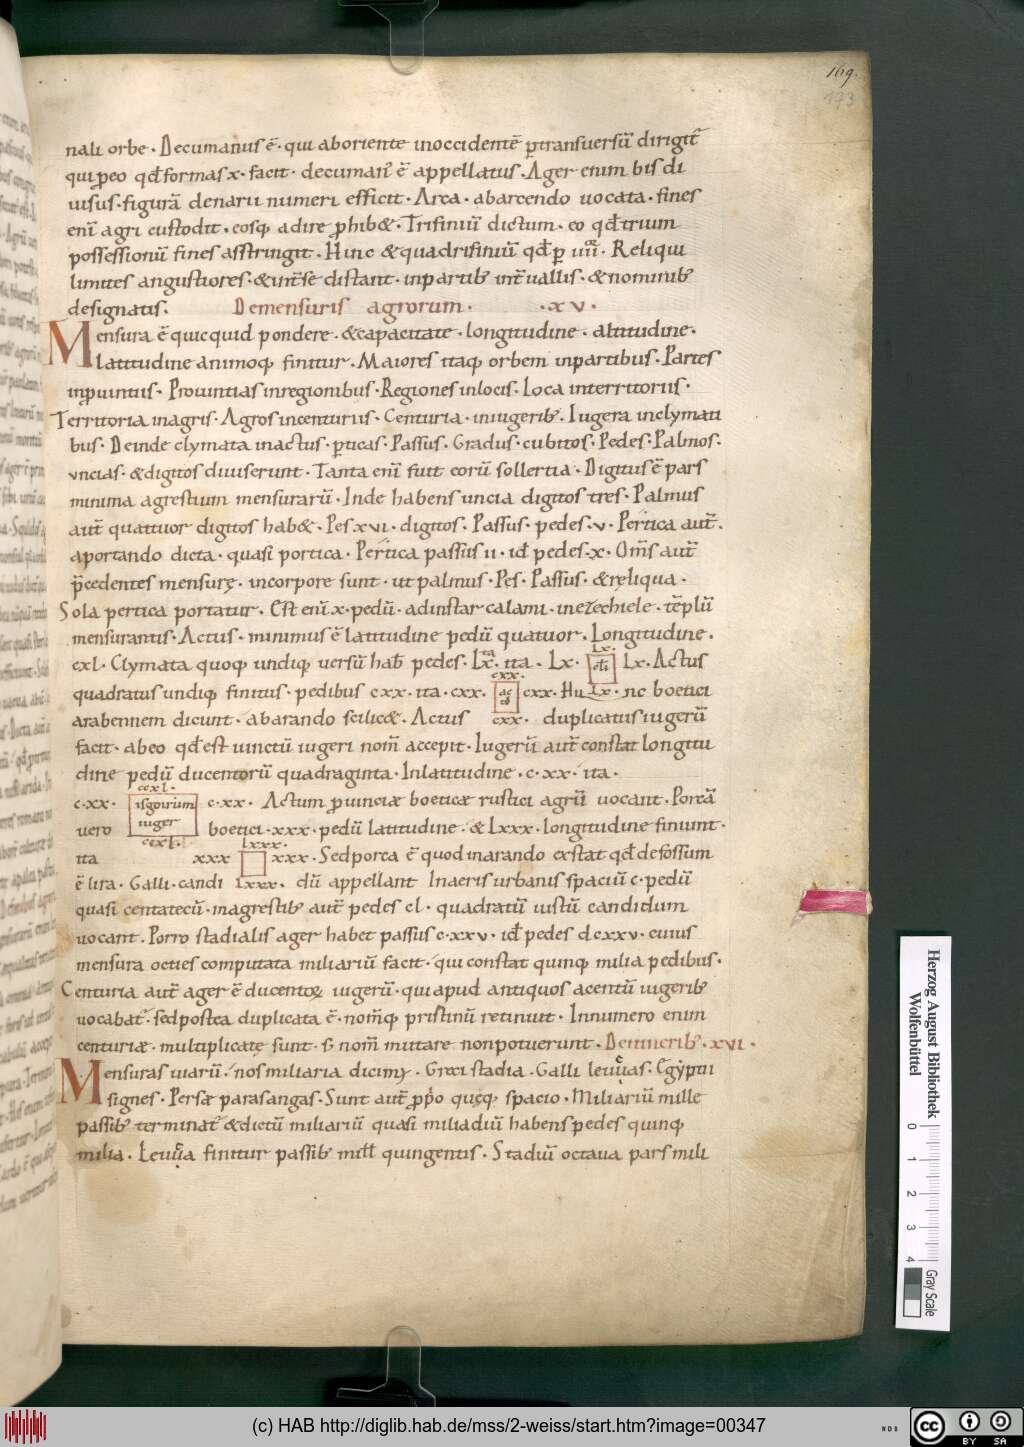 169.
173
nali orbe · Decumanus ē · qui aboriente inoccidentē ꝑtransuersū dirigit̃
qui ꝓeo qđ formas x · facit · decuman᾽ ē appellatus · Ager enim bis di
uisus · figurā denarii numeri efficit · Arca · abarcendo uocata · fines
eni᷑ agri custodit · eosq; adire ꝓhib& · Trifiniū dictum · eo qđ trium
possessionū fines asstringit · Hinc & quadrifiniū qđ ꝑ · Reliqui
limites angustiores · & int̄ se distant · inpartib; int̄uallis · & nominib;
designatis. Demensuris agrorum · · x v ·
Mensura ē quicquid pondere · &capacitate · longitudine · altitudine ·
latitudine animoq; finitur · Maiores itaq; orbem inpartibus · Partes
inꝓuintiis · Prouintias inregionibus · Regiones inlocis · Loca interritoriis ·
Territoria inagris · Agros incenturiis · Centuria · iniugerib; · Iugera inclymati
bus · Deinde clymata inactus · ꝑticas · Passus · Gradus · cubitos · Pedes · Palmos ·
vncias · & digitos diuiserunt · Tanta enī fuit eorū sollertia · Digitus ē pars
minima agrestium mensurarū · Inde habens uncia digitos tres · Palmus
aut̄ quattuor digitos hab& · Pes xvi · digitos · Passus · pedes · v · Pertica aut̄ ·
aportando dicta · quasi portica · Pertica passus ii · id pedes · x · Om̄s aut̄
p̄cedentes mensurę · incorpore sunt · ut palmus · Pes · Passus · & ręliqua ·
Sola pertica portatur · Est enī x · pedū · adinstar calami · inezechiele · tēplū
mensurantis · Actus · minimus ē latitudine pedū quatuor · Longitudine ·
cxl · Clymata quoq; undiq; uersū hab̄ pedes · Lx · ita · Lx · Lx · Actus
Lx ·
quadratus undiq; finitus · pedibus cxx · ita · cxx · cxx · Hu Lx · nc boetici
cxx ·
arabennem dicunt · abarando scilic& · Actus cxx · duplicatus iugerū
facit · abeo qđ est uinctū iugeri nom̄ accepit · Iugerū aut̄ constat longitu
dine pedū ducentorū quadraginta · Inlatitudine · c · xx · ita ·
ccxl ·
c · xx · iugerum iuger c · xx · Actum ꝓuinciæ boeticæ rustici agrū uocant · Porcā
uero ccxl · boetici · xxx · pedū latitudine · & Lxxx · longitudine finiunt ·
Lxxx ·
ita xxx xxx · Sed porca ē quod inarando exstat qđ defossum
ē lira · Galli · candi Lxxx · dū appellant Inaeris urbanis spaciū c · pedū
quasi centatecū · inagrestib; aut̄ pedes cl · quadratū iustū candidum
uocant · Porro stadialis ager habet passus c · xxv · id pedes dcxxv · cuius
mensura octies computata miliariū facit · qui constat quinq; milia pedibus ·
Centuria aut̄ ager ē ducentoꝝ iugerū · qui apud antiquos acentū iugerib;
uocabat̃ · sed postea duplicata ē · nom̄q; pristinū retinuit · In numero enim
centuriæ · multiplicatę sunt · s̄ nom̄ mutare non potuerunt · De itineribꝫ · xvi ·
Mensuras uiarū · nos miliaria dicim᾽ · Greci stadia · Galli leuuas · Egyptii
signes · Persæ parasangas · Sunt aut̄ ꝓp̄o quęq; spacio · Miliariū mille
passib; terminat̃ & dictū miliariū quasi miliadiū habens pedes quinq;
milia · Leuua finitur passib; mill̄ quingentis · Stadiū octaua pars mili
Herzog August Bibliothek
Wolfenbüttel
0 1 2 3 4
Gray Scale
(c) HAB http://diglib.hab.de/mss/2-weiss/start.htm?image=00347
NDB
cc BY SA